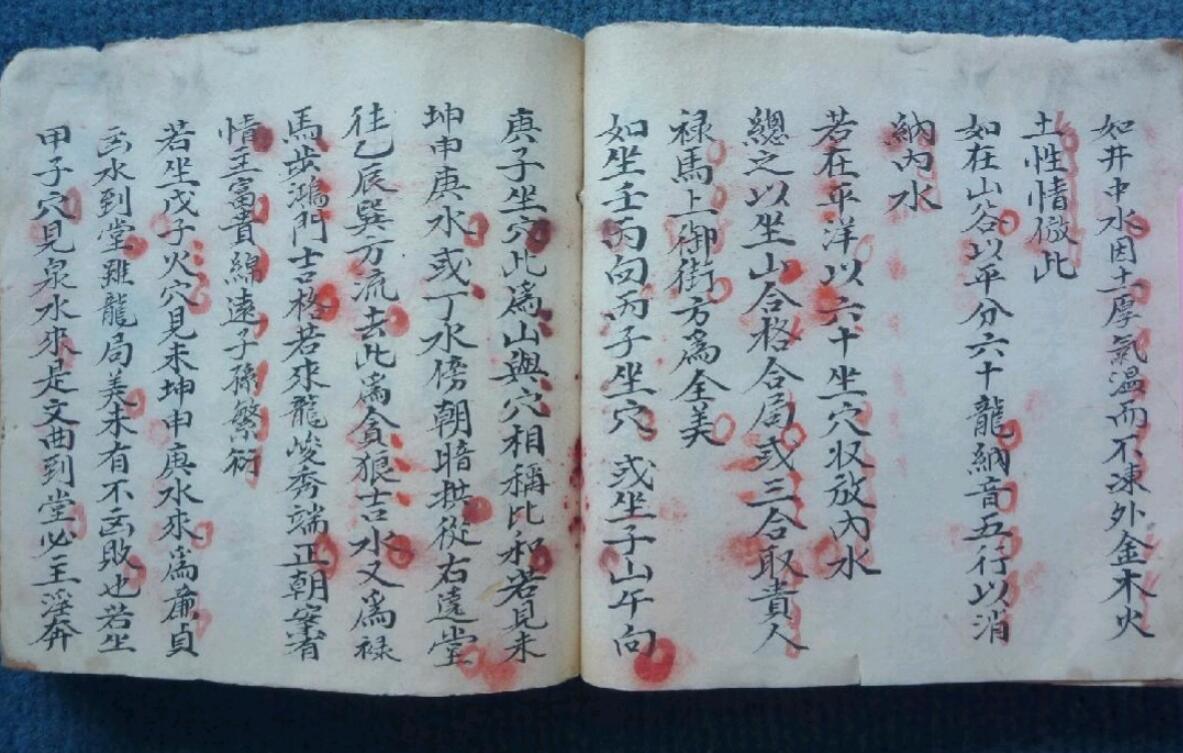 如井中水因土厚氣温而不凍外金木火
土性情倣此
如在山谷以平分六十龍納音五行以消
納內水
若在平洋以六十坐穴収放內水
總之以坐山合格合局或三合取貴人
禄馬上御街方為全美
如坐壬丙向丙子坐穴或坐子山午向
庚子坐穴此為山與穴相稱比和若見未
坤申庚水或丁水傍朝暗拱從右遶堂
徃乙辰巽方流去此為貪狼吉水又為禄
馬歩鴻門吉格若來龍峻秀端正朝峯有
情主富貴綿遠子孫繁衍
若坐戊子火穴見未坤申庚水來為廉貞
凶水到堂雖龍局美未有不凶敗也若坐
甲子穴見泉水來是文曲到堂必主淫奔